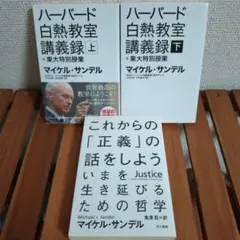 ハーバード
白熱教室
講義録 上
+東大特別授業
マイケル・サンデル
ハーバード
白熱教室
講義録 下
+東大特別授業
マイケル・サンデル
これからの
「正義」の
話をしよう
いまを Justice
生き延びる
ための哲学
Michael J. Sandel
鬼澤 忍=訳
マイケル・サンデル
早川書房